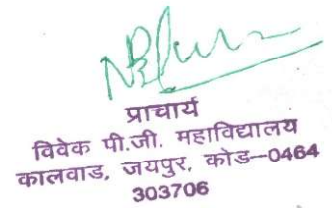 प्राचार्य
विवेक पी.जी. महाविद्यालय
कालवाड, जयपुर, कोड–0464
303706